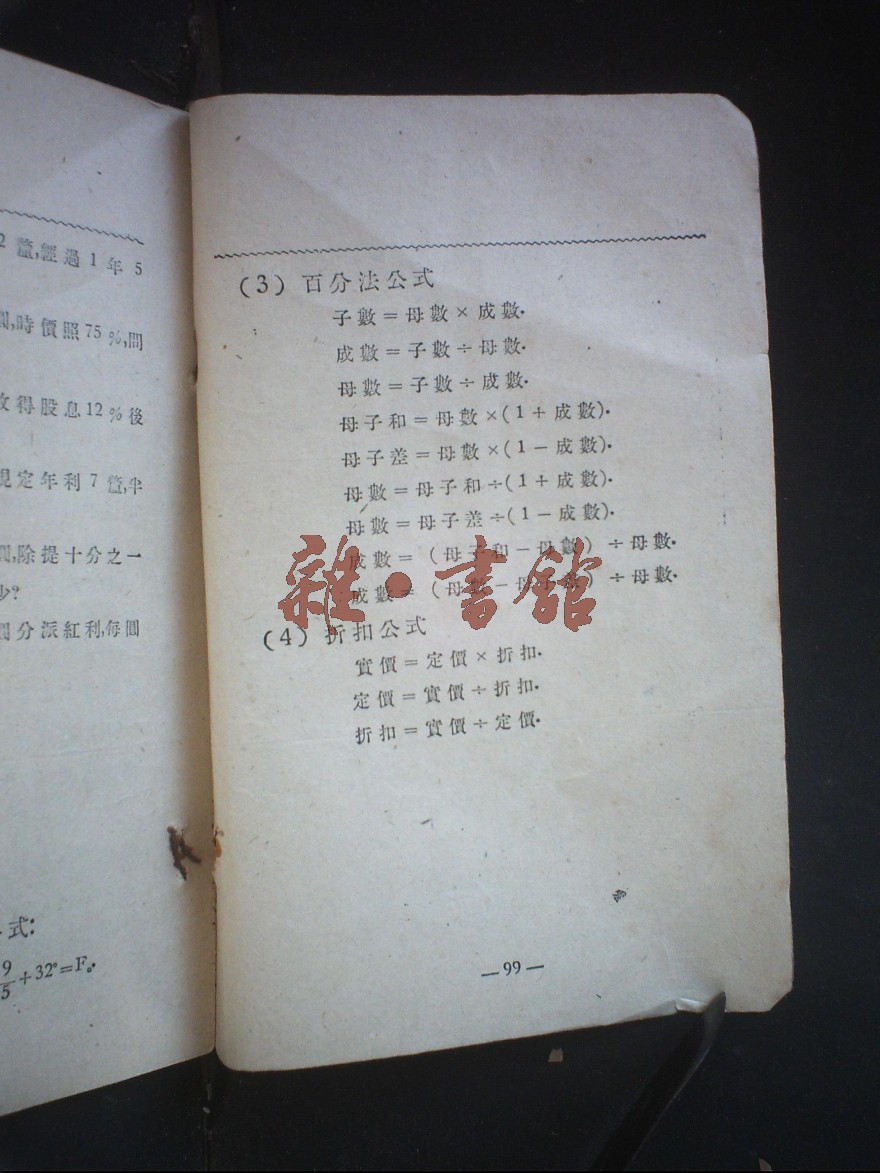 2 釐,經過 1 年 5
時價照 75 %,問
得股息 12 % 後
定年利 7 釐,半
除提十分之一
少?
分派紅利,每圓
式:
9/5 + 32° = F。
(3) 百分法公式
子數 = 母數 × 成數.
成數 = 子數 ÷ 母數.
母數 = 子數 ÷ 成數.
母子和 = 母數 × (1 + 成數).
母子差 = 母數 × (1 − 成數).
母數 = 母子和 ÷ (1 + 成數).
母數 = 母子差 ÷ (1 − 成數).
成數 = (母子和 − 母數) ÷ 母數.
成數 = (母數 − 母子差) ÷ 母數.
雜·書館
(4) 折扣公式
實價 = 定價 × 折扣.
定價 = 實價 ÷ 折扣.
折扣 = 實價 ÷ 定價.
— 99 —